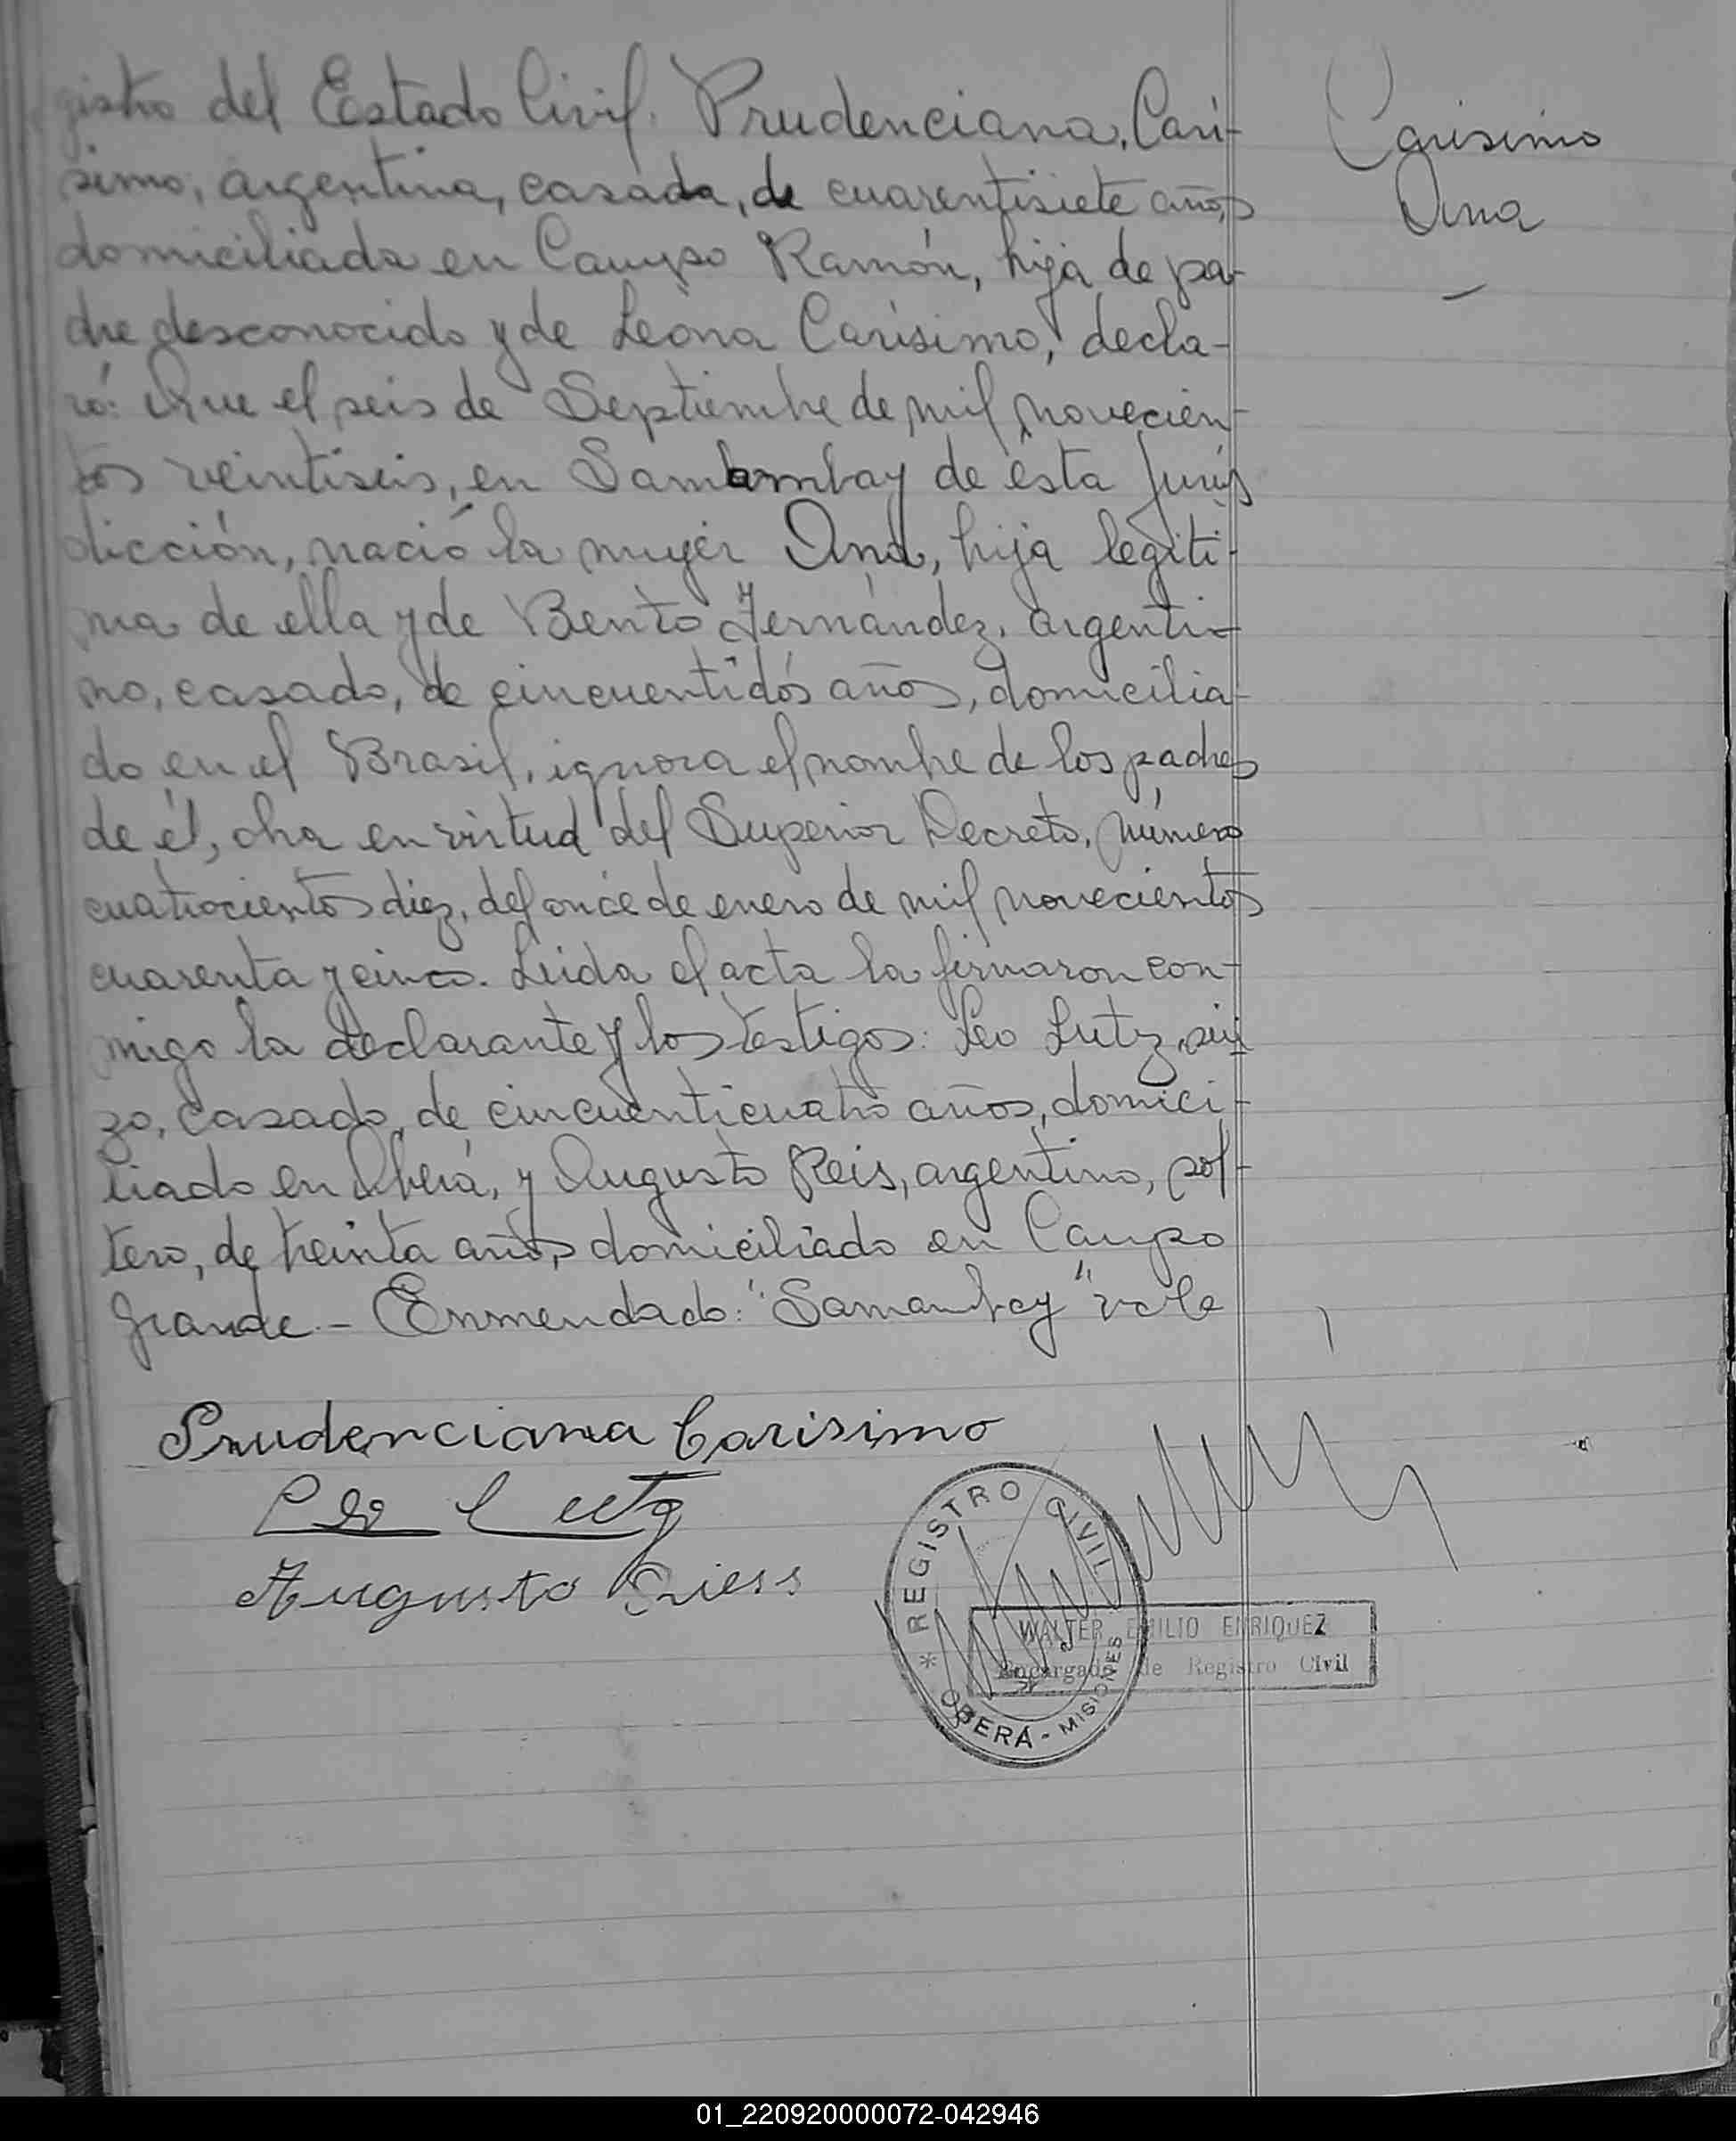 gistro del Estado Civil. Prudenciana, Cari-
simo, argentina, casada, de cuarentisiete años,
domiciliada en Campo Ramón, hija de pa-
dre desconocido y de Leona Carísimo, decla-
ró: Que el seis de Septiembre de mil novecien-
tos veintiseis, en Samambay de ésta Juris
dicción, nació la mujer Ana, hija legíti-
ma de ella y de Bento Fernández, argenti-
no, casado, de cincuentidós años, domicilia-
do en el Brasil, ignora el nombre de los padres
de él, obra en virtud del Superior Decreto, número
cuatrocientos diez, del once de enero de mil novecientos
cuarenta y cinco. Leida el acta la firmaron con-
migo la declarante y los testigos: Leo Lutz, sui
zo, casado, de cincuenticuatro años, domici-
liado en Oberá, y Augusto Reis, argentino, sol-
tero, de treinta años, domiciliado en Campo
Grande.- Enmendado: "Samambay" vale
Carisimo
Ana
Prudenciana Carisimo
Leo Lutz
Augusto Riess
REGISTRO CIVIL
OBERÁ - MISIONES
WALTER EMILIO ENRIQUEZ
Encargado de Registro Civil
01_220920000072-042946